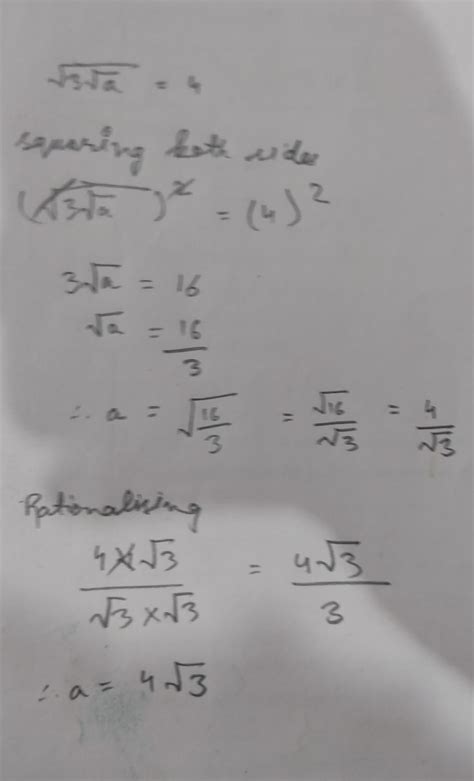 √(3√a) = 4
squaring both sides
(√(3√a))² = (4)²
3√a = 16
√a = 16/3
∴ a = √(16/3) = √16/√3 = 4/√3
Rationalising
4×√3/√3×√3 = 4√3/3
∴ a = 4√3